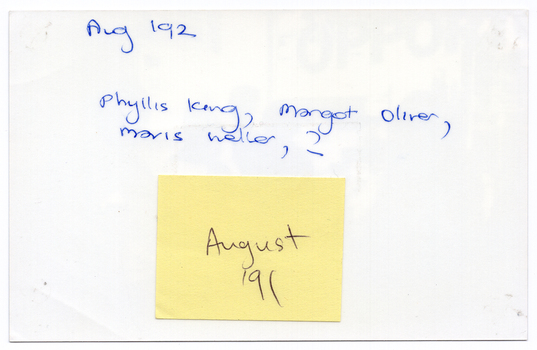 Aug 192
Phyllis King, Margot Oliver,
Mavis Weller, ?
August
'91